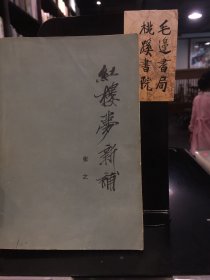 毛邊書局
桃蹊書院
紅樓夢新補
张之